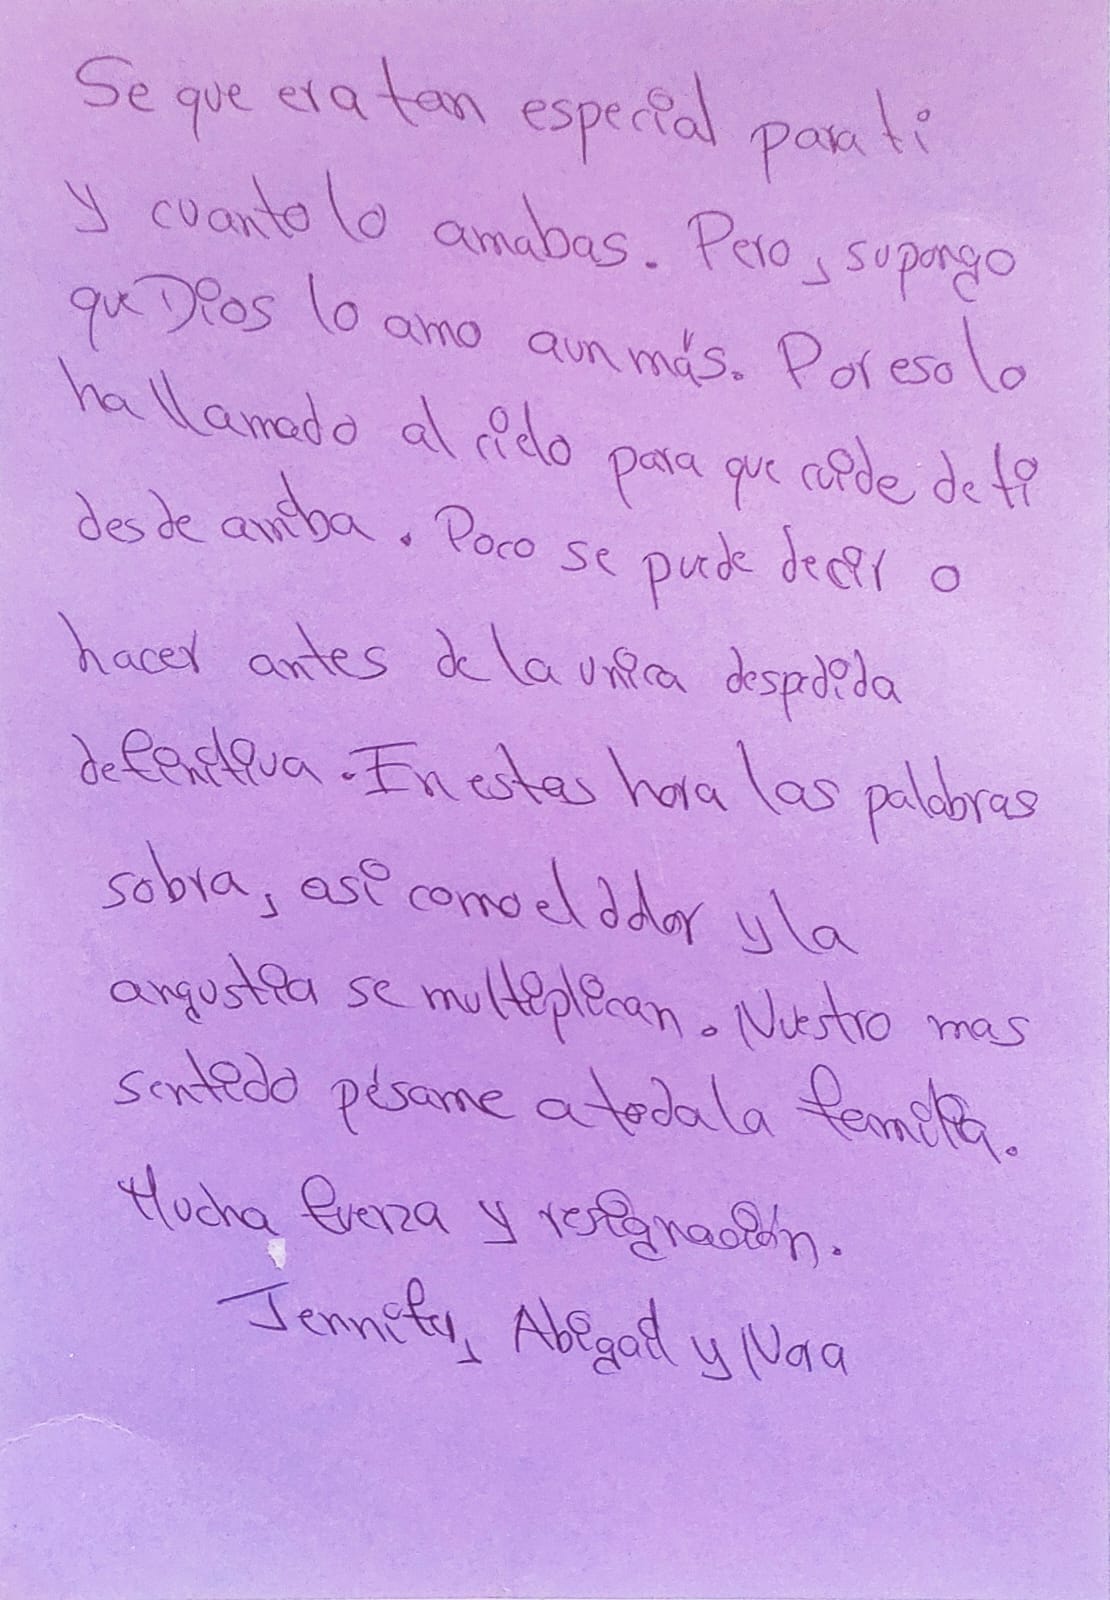 Se que era tan especial para ti
y cuanto lo amabas. Pero, supongo
que Dios lo amo aun más. Por eso lo
ha llamado al cielo para que cuide de ti
desde arriba. Poco se puede decir o
hacer antes de la unica despedida
definitiva. En estas hora las palabras
sobra, asi como el dolor y la
angustia se multiplican. Nuestro mas
sentido pésame a toda la familia.
Mucha fuerza y resignación.
Jennifer, Abigail y Nora